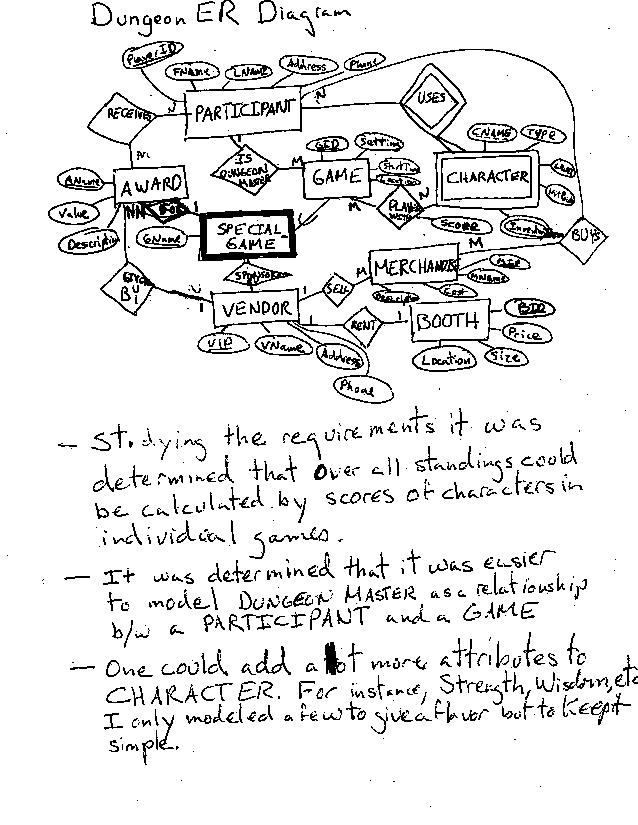 Dungeon ER Diagram
PlayerID
FName
LName
Address
Phone
RECEIVES
N
PARTICIPANT
N
USES
N
1
IS
DUNGEON
MASTER
M
GID
Setting
CNAME
TYPE
AName
AWARD
GAME
CHARACTER
Value
M
N
SCORE
Description
GName
SPECIAL
GAME
M
BUYS
SPONSORS
M
MERCHANDISE
MName
SELL
GIVEN
BY
VENDOR
1
RENT
1
BOOTH
BID
Price
VIP
VName
Address
Location
Size
Phone
- Studying the requirements it was
determined that over all standings could
be calculated by scores of characters in
individual games.
- It was determined that it was easier
to model DUNGEON MASTER as a relationship
b/w a PARTICIPANT and a GAME
- One could add a lot more attributes to
CHARACTER. For instance, Strength, Wisdom, etc
I only modeled a few to give a flavor but to keep it
simple.